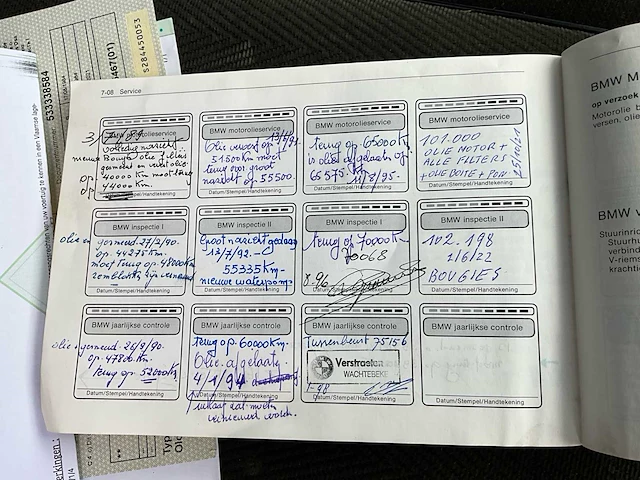 S284450053
467(01)
533338584
uw voertuig te kennen in een Vlaamse lage
7-08 Service
BMW motorolieservice
volledig nazicht
40000 Km moet terug
44000 Km.
Datum/Stempel/Handtekening
BMW motorolieservice
Olie ververst op
51500 Km moet
terug voor groot
nazicht op 55500.
Datum/Stempel/Handtekening
BMW motorolieservice
terug op 65000 Km
is olie afgelaten op
65575 Km
11/8/95.
Datum/Stempel/Handtekening
BMW motorolieservice
101.000
OLIE MOTOR +
ALLE FILTERS
Datum/Stempel/Handtekening
BMW inspectie I
gesmeerd 27/2/90.
op 44275 Km.
moet terug op 48000 Km
remblokken zijn vernieuwd
Datum/Stempel/Handtekening
BMW inspectie II
Groot nazicht gedaan
13/7/92.
55335 Km
nieuwe waterpomp
Datum/Stempel/Handtekening
BMW inspectie I
terug op 70000 Km
70068
8.96
Datum/Stempel/Handtekening
BMW inspectie II
102.198
1/6/22
BOUGIES
Datum/Stempel/Handtekening
BMW jaarlijkse controle
op 47800 Km.
terug op 52000 Km
Datum/Stempel/Handtekening
BMW jaarlijkse controle
terug op 60000 Km
Olie afgelaten
4/1/94
uitlaat zal moeten
vernieuwd worden.
Datum/Stempel/Handtekening
BMW jaarlijkse controle
Tussenbeurt 75156
Verstraeten
WACHTEBEKE
Datum/Stempel/Handtekening
BMW jaarlijkse controle
Datum/Stempel/Handtekening
BMW M
op verzoek
Motorolie b
versen, olie
BMW
Stuurinric
Stuurhu
V-riems
krachtli